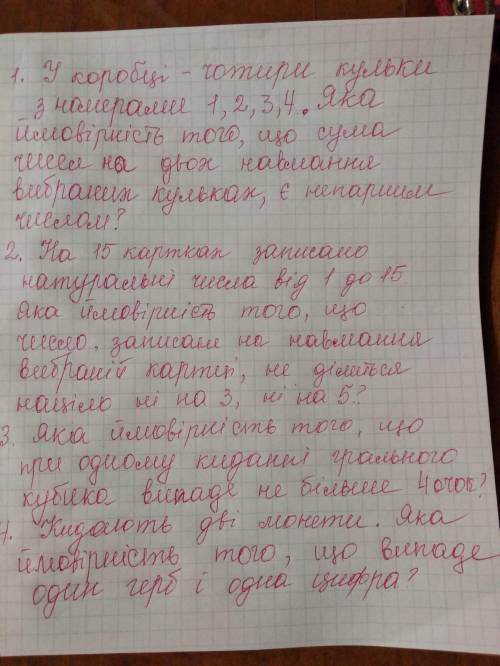 1. У коробці - чотири кульки
з номерами 1, 2, 3, 4. Яка
ймовірність того, що сума
чисел на двох навмання
вибраних кульках, є непарним
числом?
2. На 15 картках записано
натуральні числа від 1 до 15
Яка ймовірність того, що
число, записане на навмання
вибраній картці, не ділиться
націло ні на 3, ні на 5?
3. Яка ймовірність того, що
при одному киданні грального
кубика випаде не більше 4 очок?
4. Кидають дві монети. Яка
ймовірність того, що випаде
один герб і одна цифра?